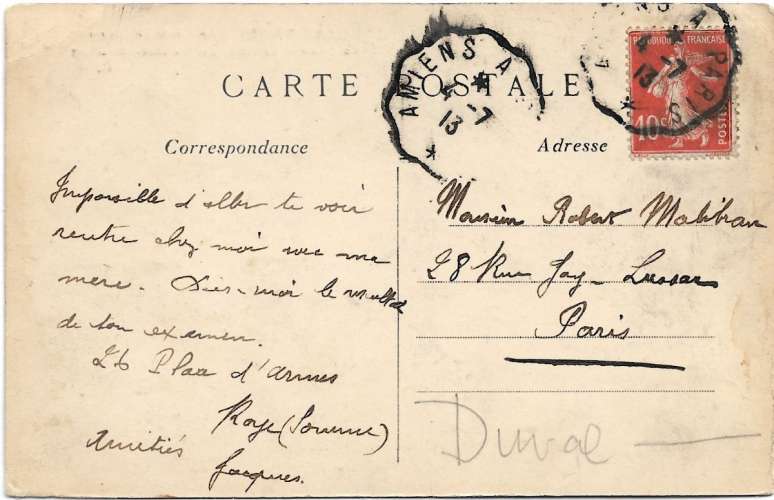 CARTE POSTALE
AMIENS A
4 -7
13
ENS A PARIS
4 -7
13
REPUBLIQUE FRANÇAISE
10c
POSTES
Correspondance
Adresse
Impossible d'aller te voir
rentre chez moi avec ma
mère. Dis-moi le resultat
de ton examen.
26 Place d'Armes
Roye (Somme)
Amitiés
Jacques.
Monsieur Robert Malibran
28 Rue Gay-Lussac
Paris
Duval